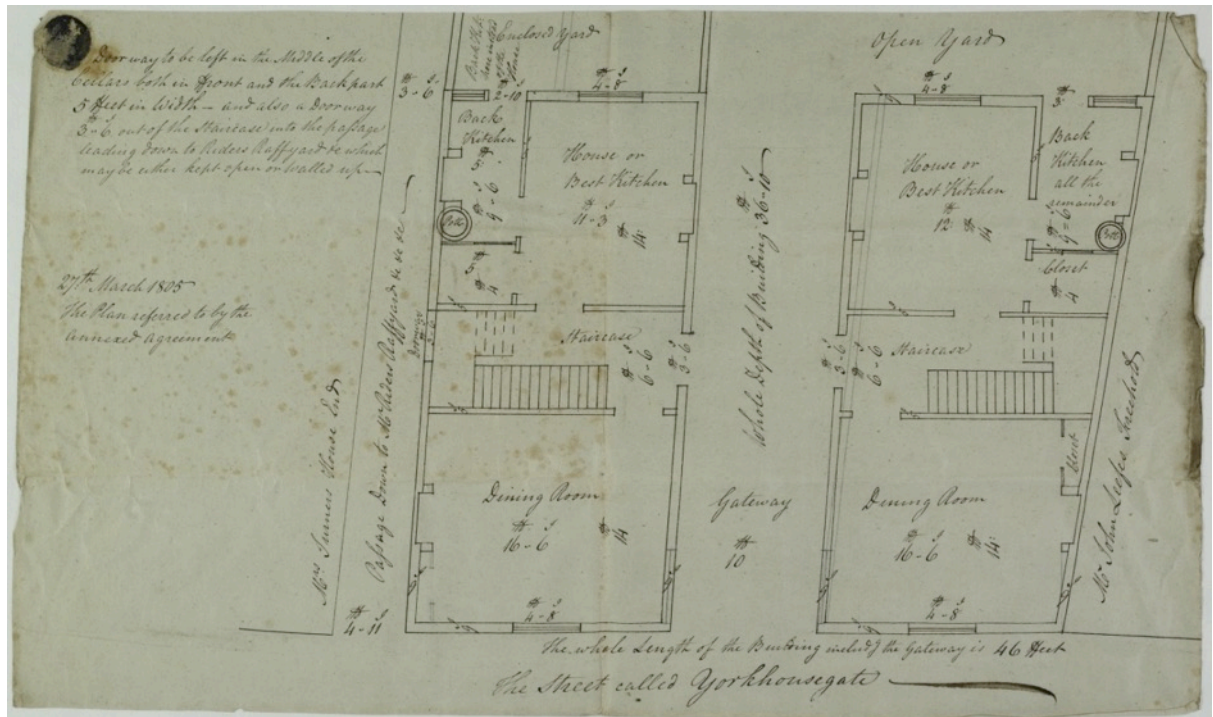 Doorway to be left in the Middle of the
Cellars both in Front and the Back part
5 Feet in Width – and also a Doorway
3-6 out of the Staircase into the passage
leading down to Riders Raffyard &c which
may be either kept open or walled up –
27th March 1805
The Plan referred to by the
annexed Agreement
Mrs Turners House End
Passage Down to Mr Riders Raffyard &c &c &c
Ft I
3-6
Ft
4-11
Enclosed Yard
House
2-10
Ft I
4-8
Back
Kitchen
Ft I
9-6
House or
Best Kitchen
Ft I
11-3
Ft
14
Ft
4
Doorway
3-6
Staircase
Ft I
6-6
Ft I
3-6
Dining Room
Ft I
16-6
Ft
14
Ft I
4-8
Whole Depth of Building 36-10
Gateway
Ft
10
Open Yard
Ft I
4-8
Ft
3
House or
Best Kitchen
Ft
12
Ft
14
Back
Kitchen
all the
remainder
Ft I
9-6
Closet
Ft
4
Ft I
3-6
Ft I
6-6
Staircase
Dining Room
Ft I
16-6
Ft
14
Ft I
4-8
Mr John Freehold
The whole Length of the Building includg the Gateway is 46 Feet
The Street called Yorkhousegate